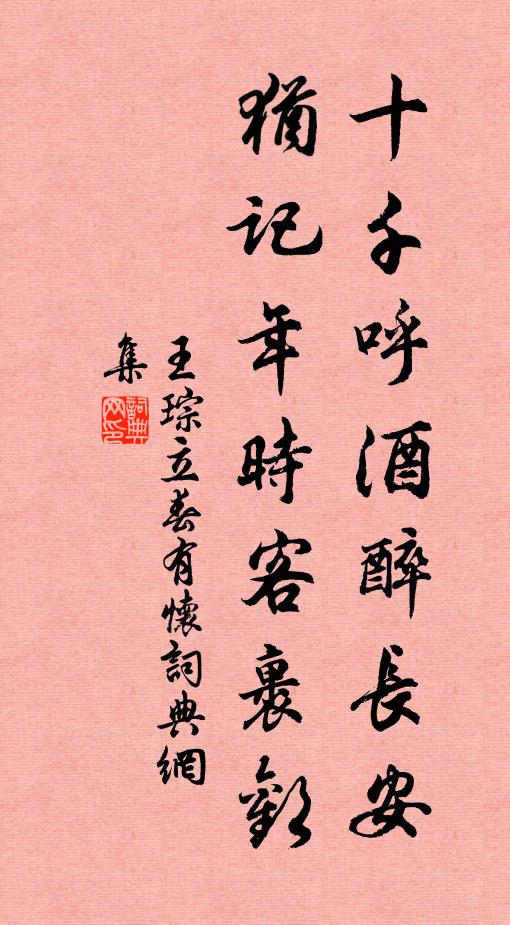 十千呼酒醉長安
猶記年時客裏歡
王琮立春有懷詞典網
集
詞典
网印